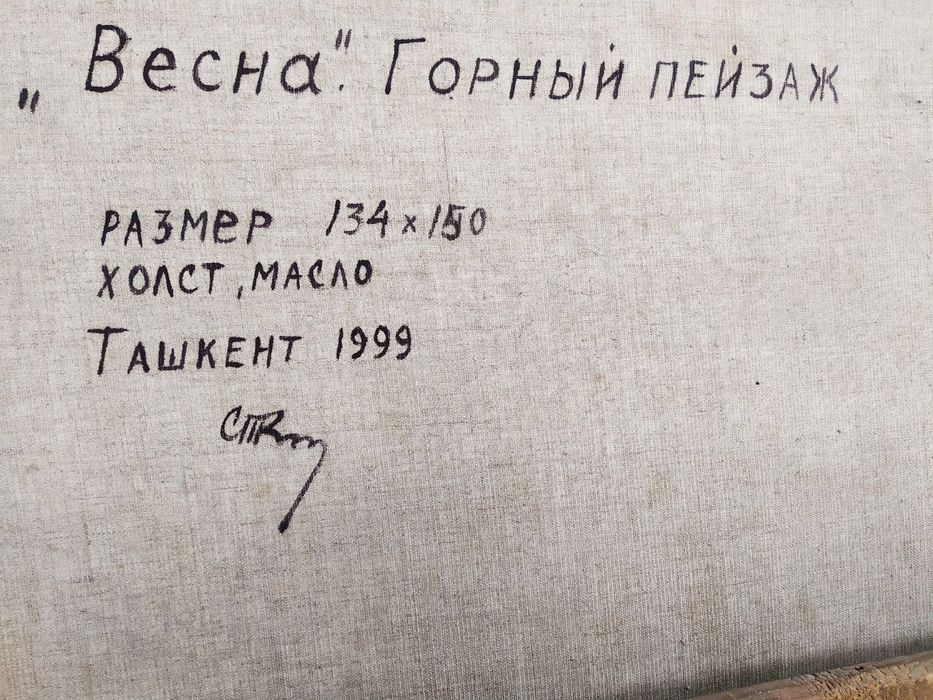 „Весна". Горный пейзаж
Размер 134 х 150
холст, масло
Ташкент 1999